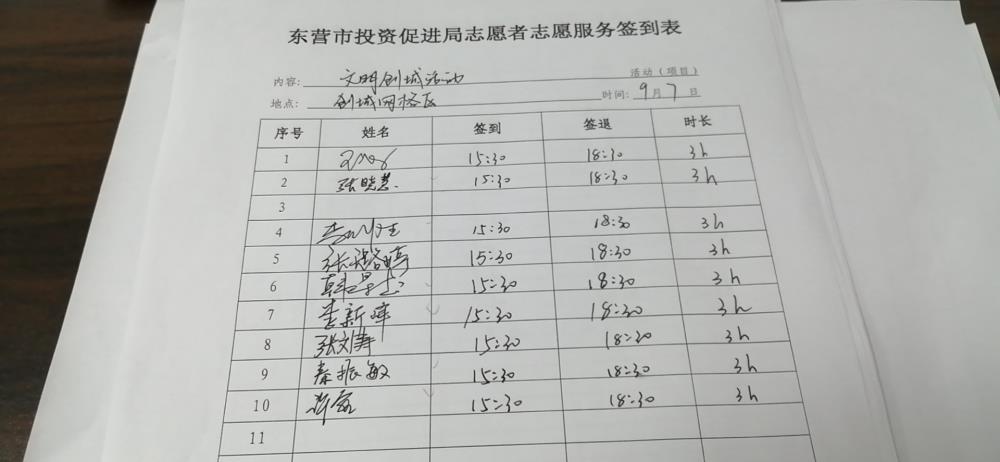 东营市投资促进局志愿者志愿服务签到表
内容: 文明创城活动 活动（项目）
地点: 创城网格区 时间: 9月7日
序号 姓名 签到 签退 时长
1 15:30 18:30 3h
2 张晓慧 15:30 18:30 3h
3
4 15:30 18:30 3h
5 15:30 18:30 3h
6 15:30 18:30 3h
7 李新峰 15:30 18:30 3h
8 张文涛 15:30 18:30 3h
9 秦振敏 15:30 18:30 3h
10 15:30 18:30 3h
11